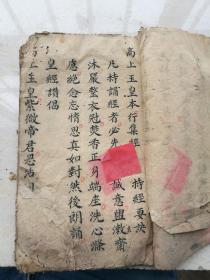 高上玉皇本行集經　持經要訣
凡持誦經者必先　誠意盥漱齋
沐嚴整衣冠焚香正身端座洗心滌
慮絕念忘情思真如對然後朗誦
皇經讚偈
高上玉皇紫微帝君